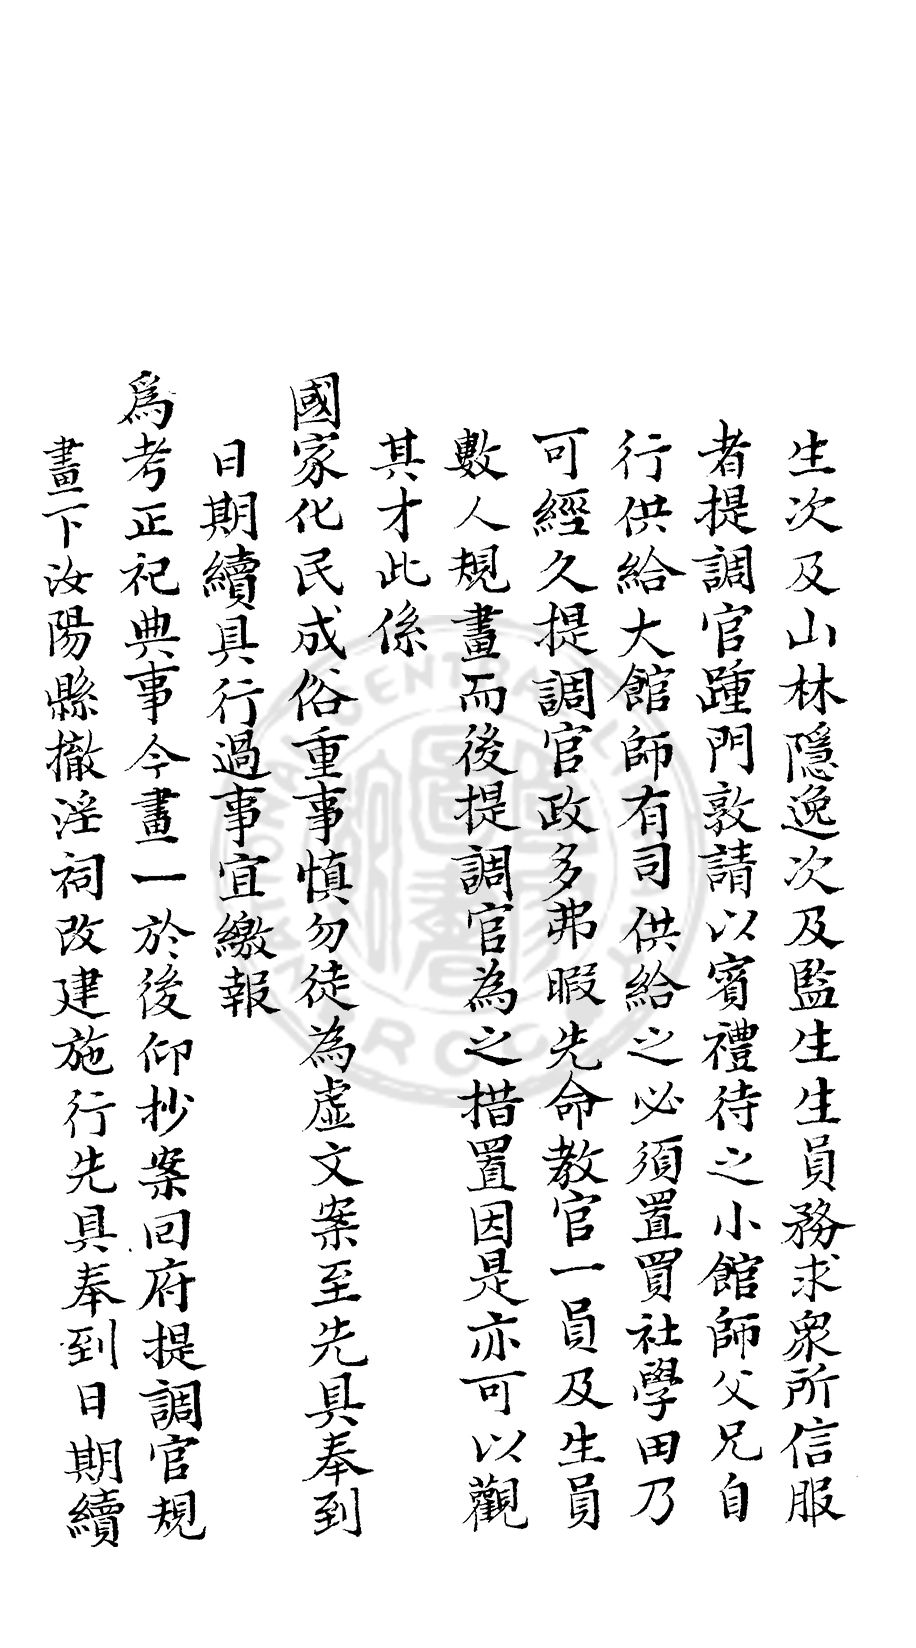 生次及山林隱逸次及監生生員務求衆所信服
者提調官踵門敦請以賓禮待之小館師父兄自
行供給大館師有司供給之必須置買社學田乃
可經久提調官政多弗暇先命教官一員及生員
數人規畫而後提調官為之措置因是亦可以觀
其才此係
國家化民成俗重事慎勿徒為虛文案至先具奉到
日期續具行過事宜繳報
爲考正祀典事今畫一於後仰抄案回府提調官規
畫下汝陽縣撤淫祠改建施行先具奉到日期續